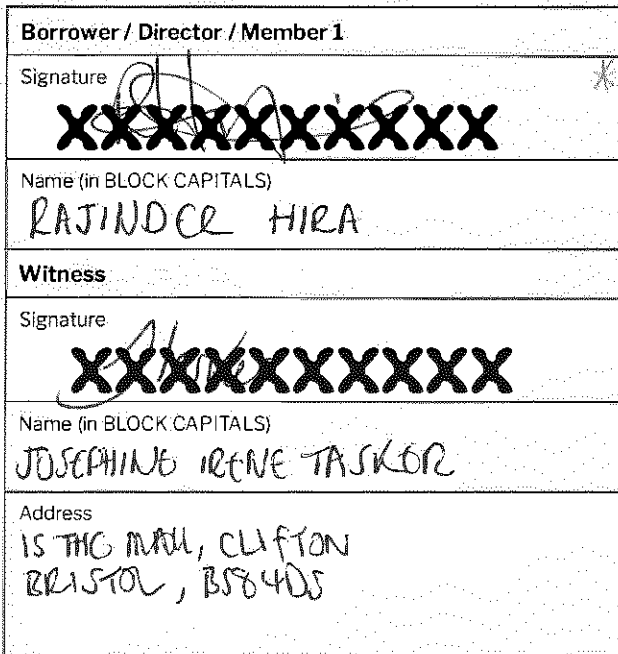 Borrower / Director / Member 1
Signature
XXXXXXXXXX
Name (in BLOCK CAPITALS)
RAJINDER HIRA
Witness
Signature
XXXXXXXXXX
Name (in BLOCK CAPITALS)
JOSEPHINE IRENE TASKER
Address
15 THE MALL, CLIFTON
BRISTOL, BS8 4DS